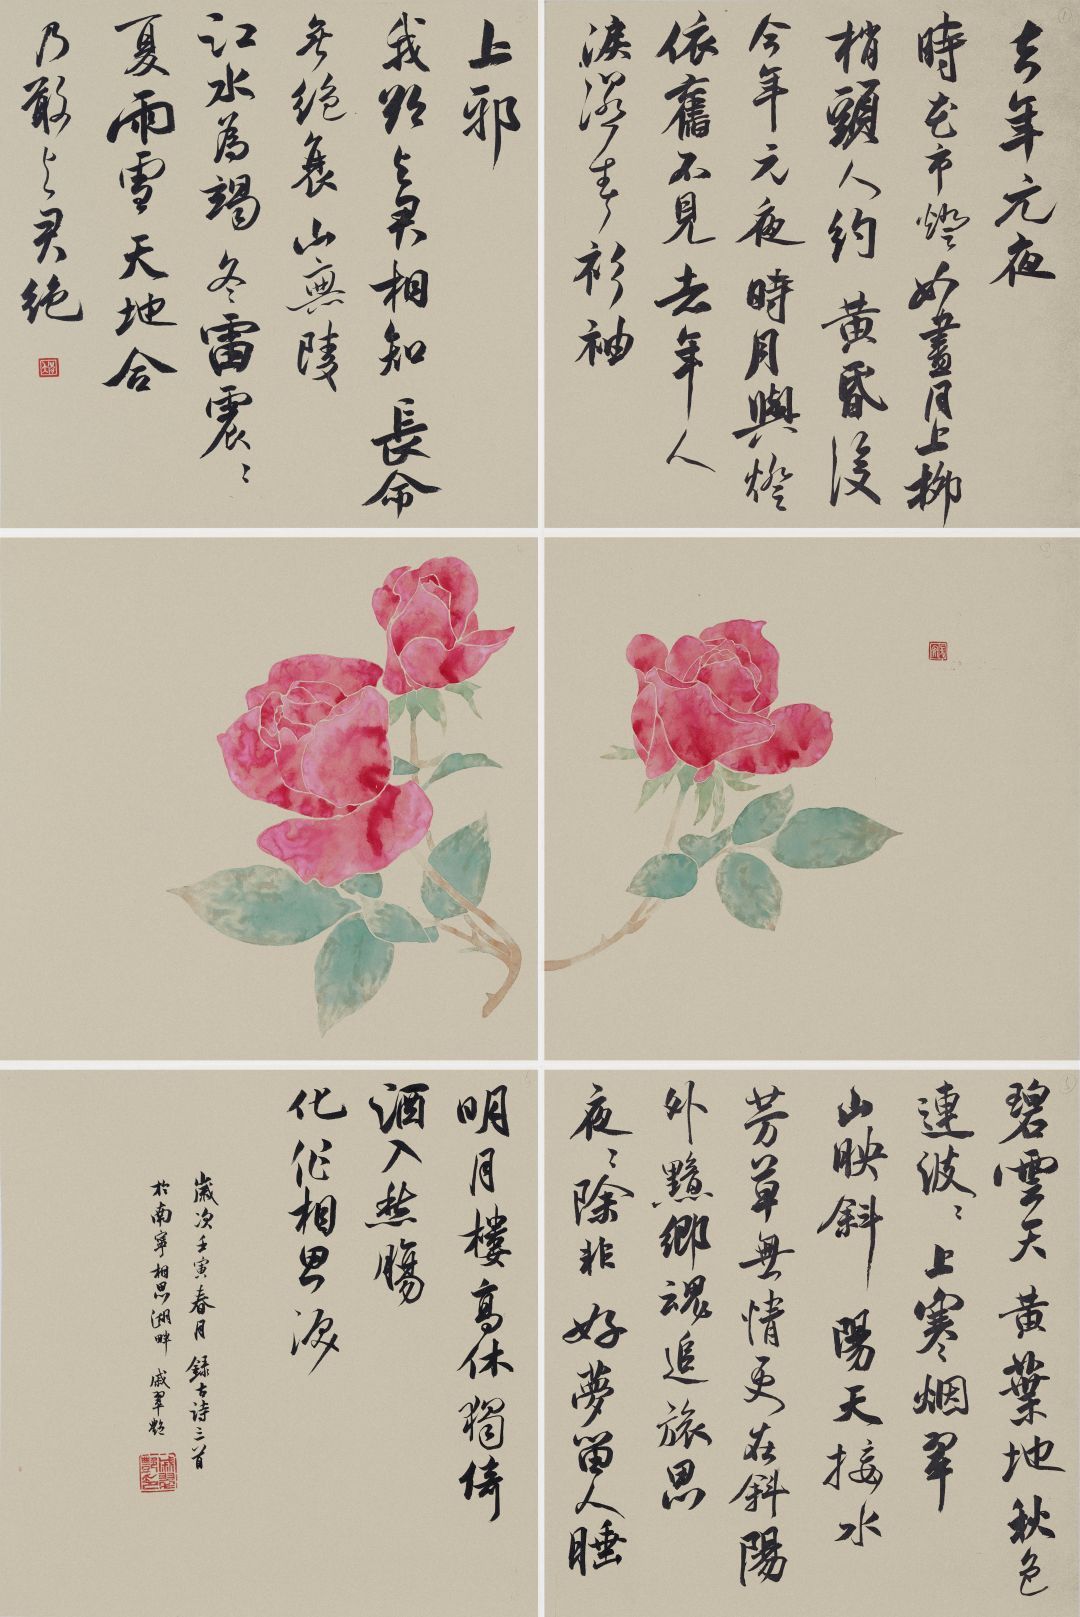 去年元夜
時花市燈如晝月上柳
梢頭人約黃昏後
今年元夜時月與燈
依舊不見去年人
淚春衫袖
上邪
我欲与君相知長命
無絕衰山無陵
江水為竭冬雷震〻
夏雨雪天地合
乃敢与君絕
碧雲天黃葉地秋色
連波〻上寒烟翠
山映斜陽天接水
芳草無情更在斜陽
外黯鄉魂追旅思
夜〻除非好夢留人睡
明月樓高休獨倚
酒入愁腸
化作相思淚
歲次壬寅春月 錄古詩三首
於南寧相思湖畔 戚翠艷